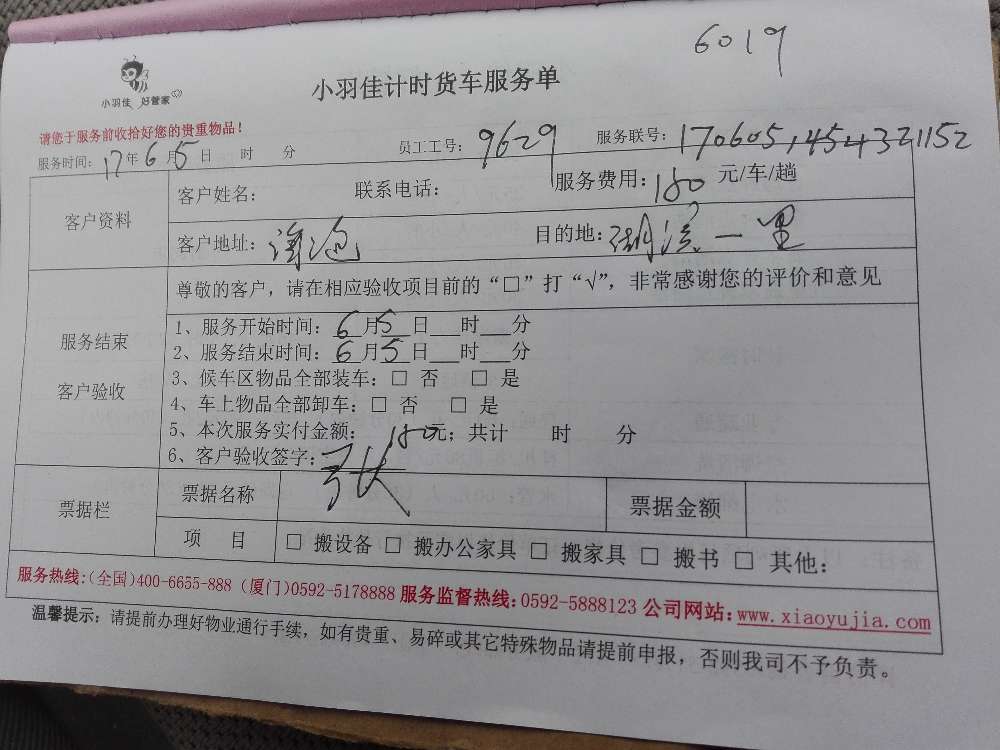 6019
小羽佳 好管家
小羽佳计时货车服务单
请您于服务前收拾好您的贵重物品！
服务时间：17年6月5日 时 分 员工工号：9629 服务联号：170605145432152
客户资料
客户姓名： 联系电话： 服务费用：180 元/车/趟
客户地址： 目的地：湖滨一里
尊敬的客户，请在相应验收项目前的“□”打“√”，非常感谢您的评价和意见
服务结束
客户验收
1、服务开始时间：6月5日__时__分
2、服务结束时间：6月5日__时__分
3、候车区物品全部装车：□ 否 □ 是
4、车上物品全部卸车：□ 否 □ 是
5、本次服务实付金额：180元；共计 时 分
6、客户验收签字：张
票据栏
票据名称 票据金额
项 目 □ 搬设备 □ 搬办公家具 □ 搬家具 □ 搬书 □ 其他：
服务热线：(全国)400-6655-888 (厦门)0592-5178888 服务监督热线：0592-5888123 公司网站：www.xiaoyujia.com
温馨提示：请提前办理好物业通行手续，如有贵重、易碎或其它特殊物品请提前申报，否则我司不予负责。